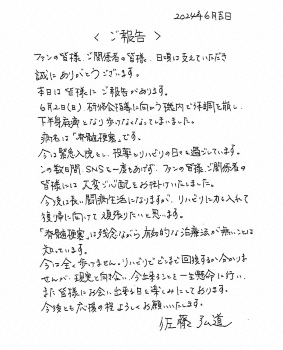 2024年6月吉日
< ご報告 >
ファンの皆様、ご関係者の皆様、日頃は支えていただき
誠にありがとうございます。
本日は皆様にご報告があります。
6月2日(日)、研修会指導に向かう機内で体調を崩し、
下半身麻痺となり歩けなくなってしまいました。
病名は「脊髄梗塞」です。
今は緊急入院をし、投薬とリハビリの日々を過ごしています。
この数日間、SNSを一度もあげず、ファンの皆様、ご関係者の
皆様には大変ご心配をお掛けいたしました。
今後は長い闘病生活になりますが、リハビリに力を入れて
復帰に向けて頑張りたいと思います。
「脊髄梗塞」は残念ながら有効的な治療法が無いことは
知っています。
今は全く歩けません。リハビリでどこまで回復するか分かりま
せんが、現実と向き合い、今出来ることを一生懸命に行い、
また皆様にお会い出来る日を楽しみにしております。
今後とも応援の程よろしくお願いいたします。
佐藤弘道